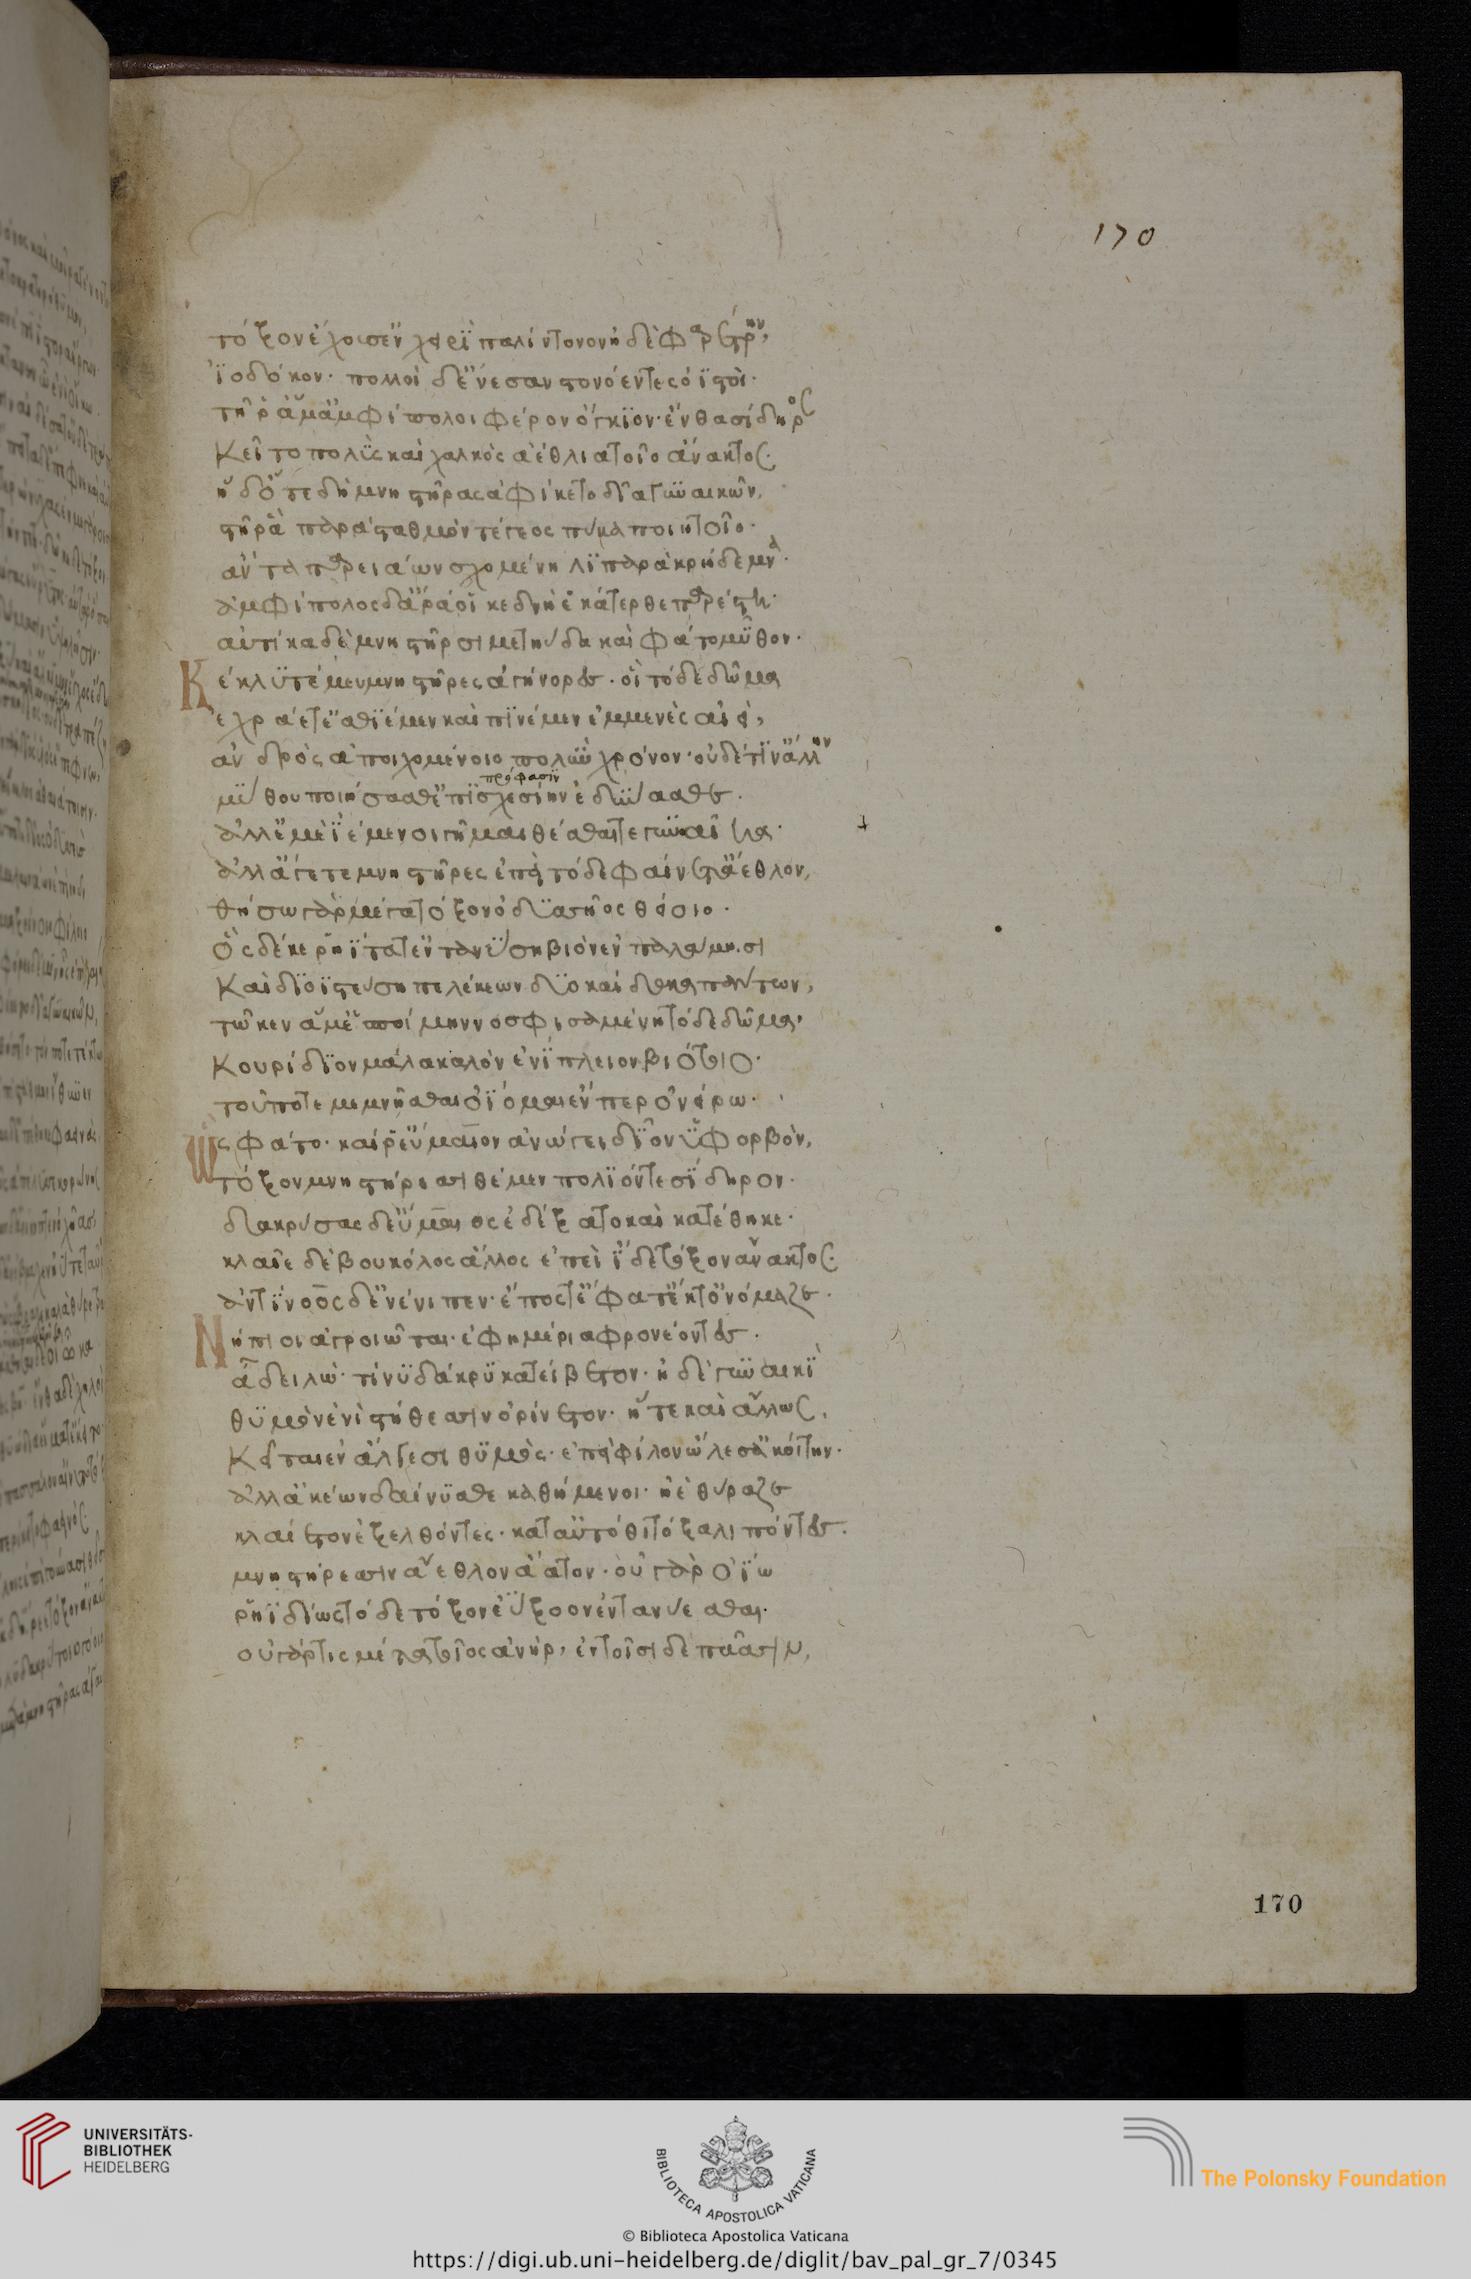 170
τόξον ἔχουσ' ἐν χειρὶ παλίντονον ἠδὲ φαρέτρην,
ἰοδόκον· πολλοὶ δ' ἔνεσαν στονόεντες ὀϊστοί·
τῇ δ' ἄρ' ἅμ' ἀμφίπολοι φέρον ὄγκιον· ἔνθα σίδηρος
Κεῖτο πολὺς καὶ χαλκὸς ἀέθλια τοῖο ἄνακτος·
ἡ δ' ὅτε δὴ μνηστῆρας ἀφίκετο δῖα γυναικῶν,
στῆ ῥα παρὰ σταθμὸν τέγεος πύκα ποιητοῖο·
ἄντα παρειάων σχομένη λιπαρὰ κρήδεμνα·
ἀμφίπολος δ' ἄρα οἱ κεδνὴ ἑκάτερθε παρέστη·
αὐτίκα δὲ μνηστῆρσι μετηύδα καὶ φάτο μῦθον·
Κέκλυτέ μευ μνηστῆρες ἀγήνορες· οἳ τόδε δῶμα
ἐχράετ' ἐσθιέμεν καὶ πινέμεν ἐμμενὲς αἰεὶ,
ἀνδρὸς ἀποιχομένοιο πολὺν χρόνον· οὐδέ τιν' ἄλλην
πρόφασιν
μύθου ποιήσασθ' ἐπισχεσίην ἐδύνασθε·
ἀλλ' ἐμὲ ἱέμενοι γῆμαι θέσθαι τε γυναῖκα·
ἀλλ' ἄγετε μνηστῆρες ἐπεὶ τόδε φαίνετ' ἄεθλον,
θήσω γὰρ μέγα τόξον ὀδυσσῆος θείοιο·
ὃς δέ κε ῥηΐτατ' ἐντανύσῃ βιὸν ἐν παλάμῃσι
Καὶ διοϊστεύσῃ πελέκεων δυοκαίδεκα πάντων,
τῷ κεν ἅμ' ἑποίμην νοσφισαμένη τόδε δῶμα,
Κουρίδιον μάλα καλὸν ἐνίπλειον βιότοιο·
τοῦ ποτε μεμνῆσθαι ὀΐομαι ἔν περ ὀνείρω·
Ὣς φάτο· καί ῥ' εὔμαιον ἀνώγει δῖον ὑφορβὸν,
τόξον μνηστήρεσσι θέμεν πολιόν τε σίδηρον·
δακρύσας δ' εὔμαιος ἐδέξατο καὶ κατέθηκε·
κλαῖε δὲ βουκόλος ἄλλος ἐπεὶ ἴδε τόξον ἄνακτος·
ἀντίνοος δ' ἐνένιπεν· ἔπος τ' ἔφατ' ἔκ τ' ὀνόμαζε·
Νήπιοι ἀγροιῶται· ἐφημέρια φρονέοντες·
ἆ δειλώ· τί νυ δάκρυ κατείβετον· ἠδὲ γυναικὶ
θυμὸν ἐνὶ στήθεσσιν ὀρίνετον· ᾗ τε καὶ ἄλλως,
Κεῖται ἐν ἄλγεσι θυμός· ἐπεὶ φίλον ὤλεσ' ἀκοίτην·
ἀλλ' ἀκέων δαίνυσθε καθήμενοι· ἠὲ θύραζε
κλαίετον ἐξελθόντες· κατ' αὐτόθι τόξα λιπόντες·
μνηστήρεσσιν ἄεθλον ἀάατον· οὐ γὰρ ὀΐω
ῥηϊδίως τόδε τόξον ἐΰξοον ἐντανύεσθαι·
οὐ γάρ τις μέτα τοῖος ἀνὴρ, ἐν τοῖσι δε πᾶσιν,
170
UNIVERSITÄTS-
BIBLIOTHEK
HEIDELBERG
BIBLIOTECA APOSTOLICA VATICANA
The Polonsky Foundation
© Biblioteca Apostolica Vaticana
https://digi.ub.uni-heidelberg.de/diglit/bav_pal_gr_7/0345